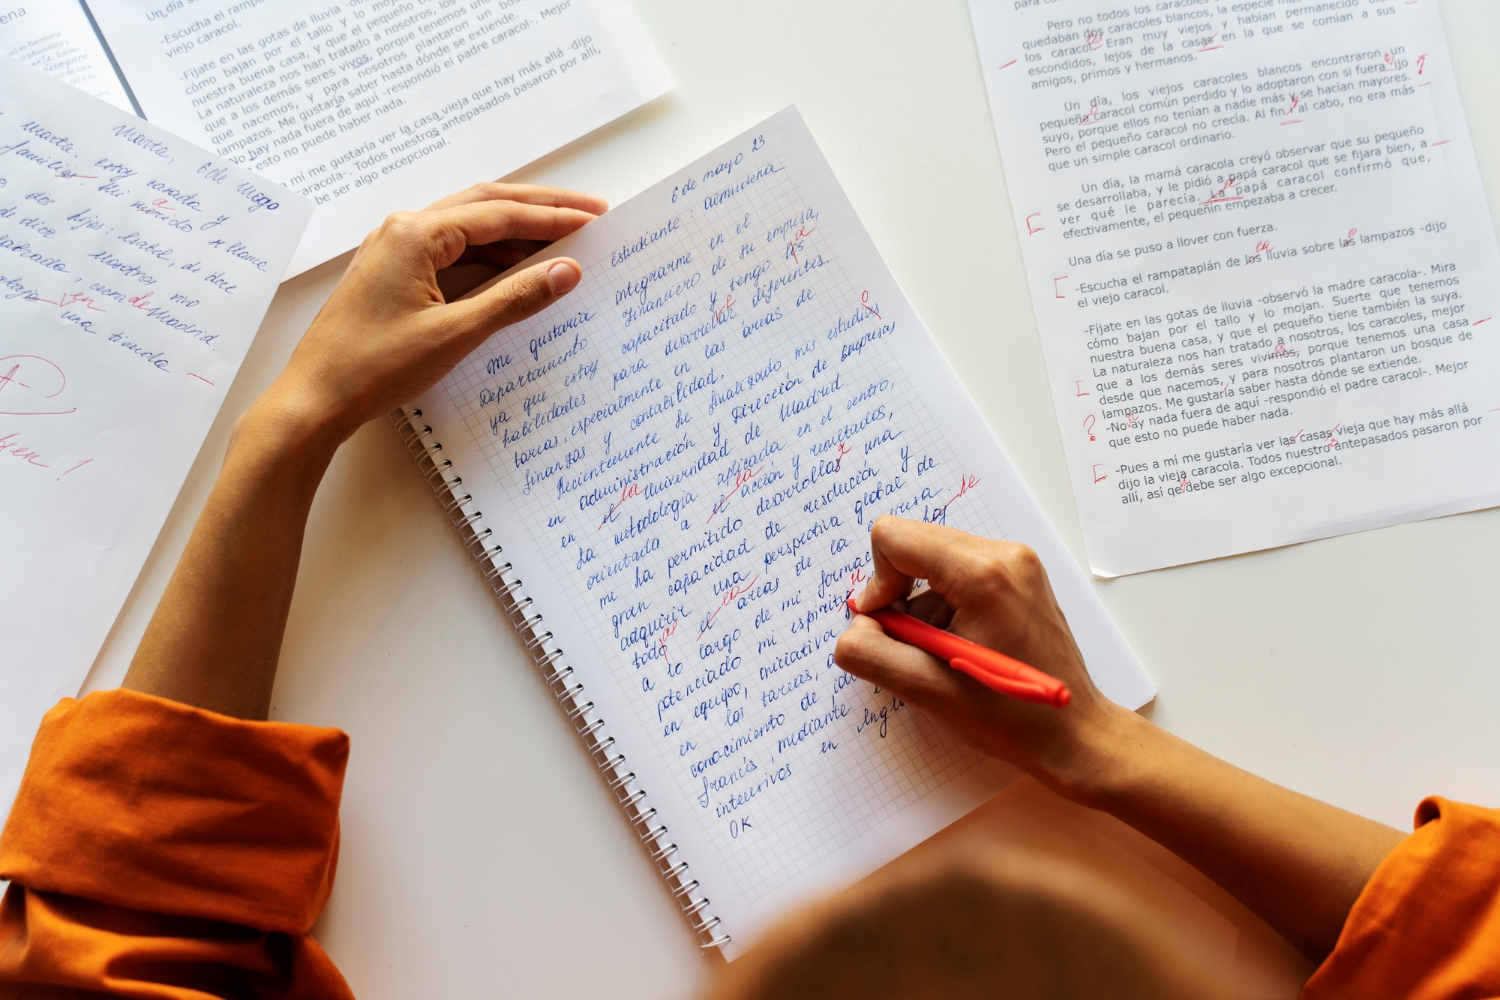 6 de mayo 23
Estudiante: Almudena
Me gustaría integrarme en el
Departamento Financiero de su empresa,
ya que estoy capacitado y tengo las
habilidades para desarrollar diferentes
tareas, especialmente en las áreas de
finanzas y contabilidad.
Recientemente he finalizado mis estudios
en administración y Dirección de Empresas
en el la Universidad de Madrid
La metodología aplicada en el centro,
orientada a el la acción y resultados,
me ha permitido desarrollar una
gran capacidad de resolución y
adquirir una perspectiva global de
todo el las áreas de la empresa.
a lo largo de mi formac
potenciado mi espíritu
en equipo, iniciativa
en las tareas, a
conocimiento de idi
francés, mediante
intensivos en Ingl
OK
Marta, 6 de mayo
Marta, estoy casada y
familia. Mi marido se llama
dos hijos: Isabel, de doce
de diez
Nosotros
cerca de Madrid.
en una tienda
A-
¡Bien!
Un día s
-Escucha el rampa
viejo caracol.
-Fíjate en las gotas de lluvia -o
cómo bajan por el tallo y lo
nuestra buena casa, y que el pequeño
La naturaleza nos han tratado a nosotros, los
que a los demás seres vivos, porque tenemos una
que nacemos, y para nosotros plantaron un bos
lampazos. Me gustaría saber hasta dónde se extiende.
-No hay nada fuera de aquí -respondió el padre caracol-. Mejor
esto no puede haber nada.
a mí me gustaría ver la casa vieja que hay más allá -dijo
caracola-. Todos nuestros antepasados pasaron por allí,
be ser algo excepcional.
Pero no todos los caracoles
quedaban dos caracoles blancos, la especie
los caracol. Eran muy viejos y habían permanecido
escondidos, lejos de la casas en la que se comían a sus
amigos, primos y hermanos.
Un día, los viejos caracoles blancos encontraron un
pequeña caracol común perdido y lo adoptaron con si fuera ijo
suyo, porque ellos no tenían a nadie más y se hacían mayores.
Pero el pequeño caracol no crecía. Al fin i al cabo, no era más
que un simple caracol ordinario.
Un día, la mamá caracola creyó observar que su pequeño
se desarrollaba, y le pidió a papá caracol que se fijara bien, a
ver qué le parecía. La papá caracol confirmó que,
efectivamente, el pequeñin empezaba a crecer.
Una día se puso a llover con fuerza.
-Escucha el rampataplán de los lluvia sobre las lampazos -dijo
el viejo caracol.
-Fíjate en las gotas de lluvia -observó la madre caracola-. Mira
cómo bajan por el tallo y lo mojan. Suerte que tenemos
nuestra buena casa, y que el pequeño tiene también la suya.
La naturaleza nos han tratado a nosotros, los caracoles, mejor
que a los demás seres vivimos, porque tenemos una casa
desde que nacemos, y para nosotros plantaron un bosque de
lampazos. Me gustaría saber hasta dónde se extiende.
-No ay nada fuera de aquí -respondió el padre caracol-. Mejor
que esto no puede haber nada.
-Pues a mí me gustaría ver las casas vieja que hay más allá
dijo la vieja caracola. Todos nuestro antepasados pasaron por
allí, así qe debe ser algo excepcional.